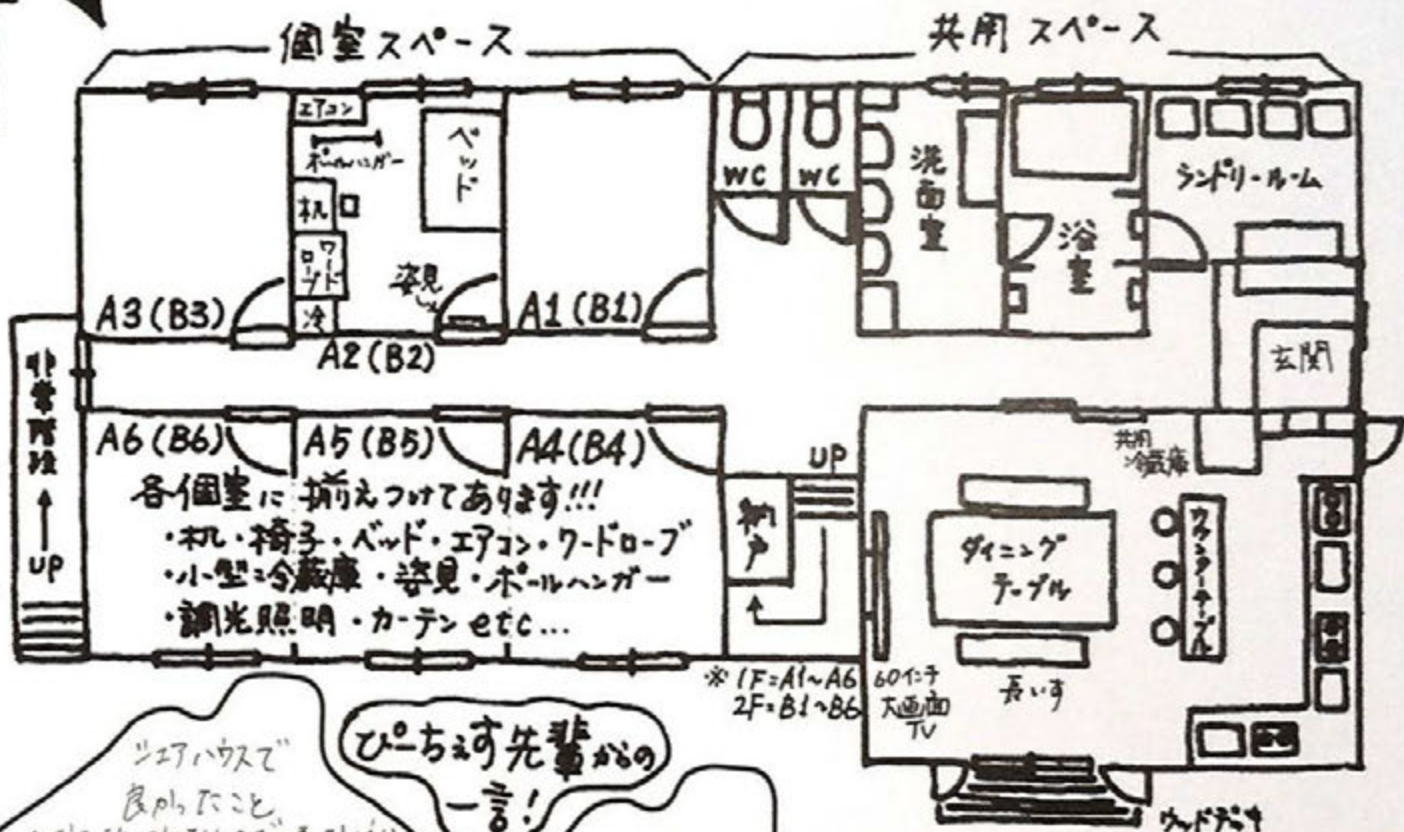 個室スペース
共用スペース
エアコン
ポールハンガー
ベッド
机
ワードローブ
姿見
冷
A3(B3)
A2(B2)
A1(B1)
WC
WC
洗面室
浴室
ランドリールーム
玄関
非常階段
UP
A6(B6)
A5(B5)
A4(B4)
各個室に揃えつけてあります!!!
・机・椅子・ベッド・エアコン・ワードローブ
・小型冷蔵庫・姿見・ポールハンガー
・調光照明・カーテンetc...
納戸
UP
共用
冷蔵庫
ダイニング
テーブル
カウンターテーブル
長いす
60インチ
大画面
TV
※1F=A1~A6
2F=B1~B6
ウッドデッキ
シェアハウスで
良かったこと
ぴーちぇす先輩からの
一言!